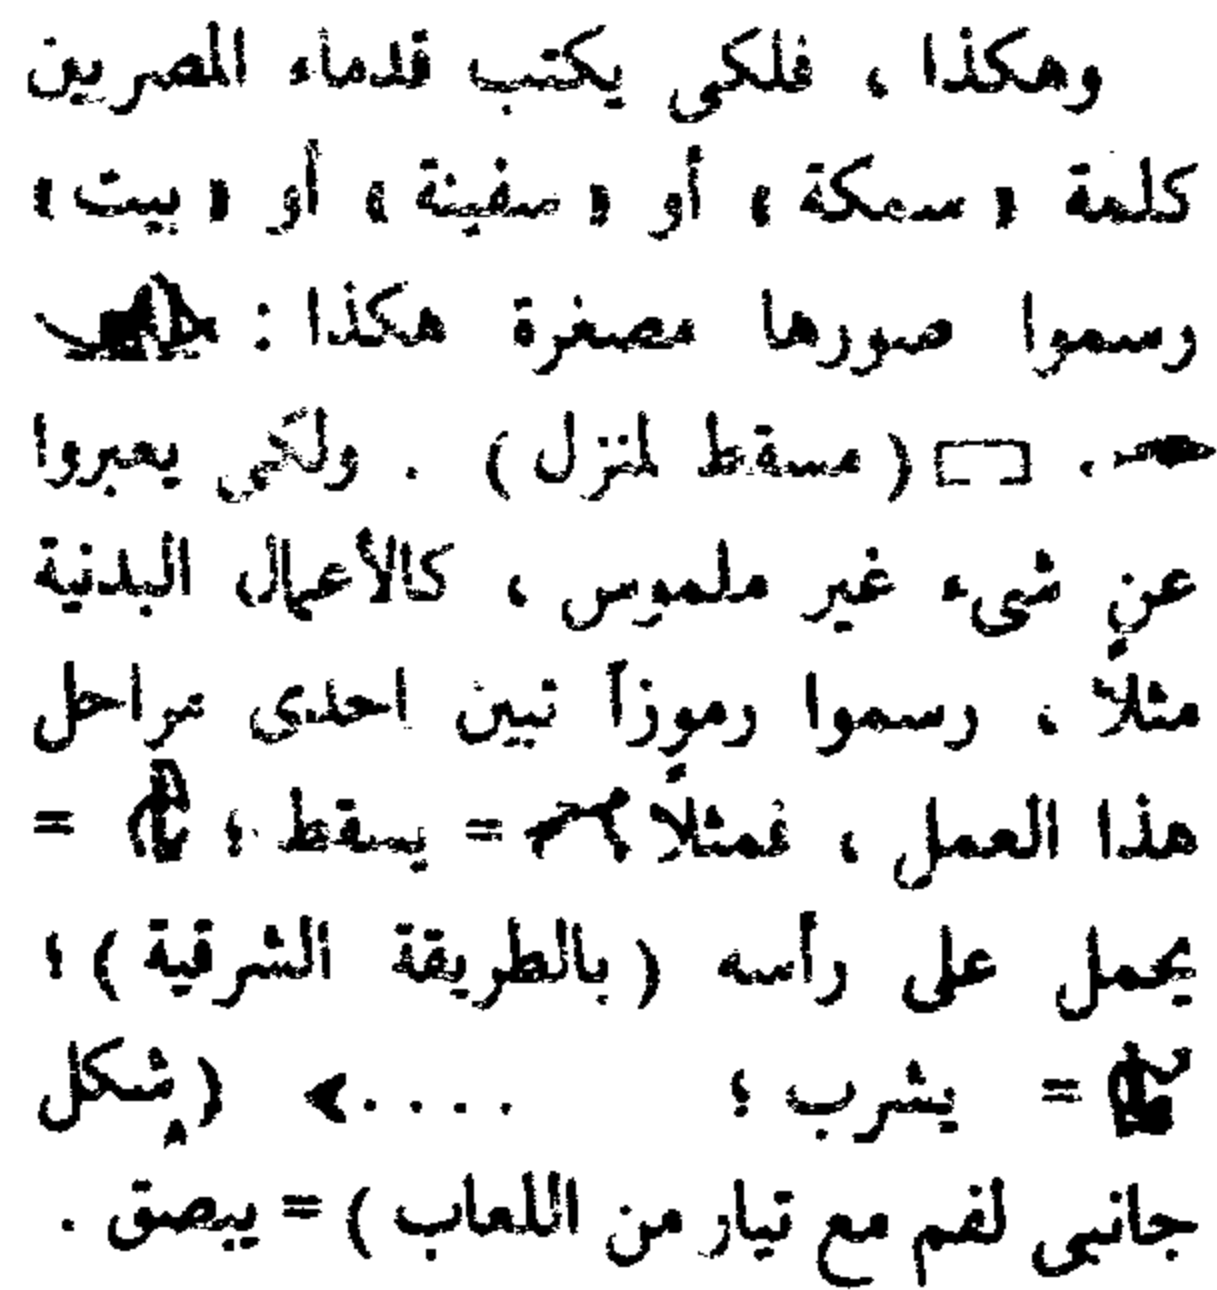 وهكذا ، فلكى يكتب قدماء المصريين
كلمة « سمكة » أو « سفينة » أو « بيت »
رسموا صورها مصغرة هكذا :
. (مسقط لمنزل) . ولكى يعبروا
عن شىء غير ملموس ، كالأعمال البدنية
مثلاً ، رسموا رموزاً تبين احدى مراحل
هذا العمل ، فمثلاً = يسقط ؛ =
يحمل على رأسه (بالطريقة الشرقية) ؛
= يشرب ؛ . . . . (شكل
جانبى لفم مع تيار من اللعاب) = يبصق .